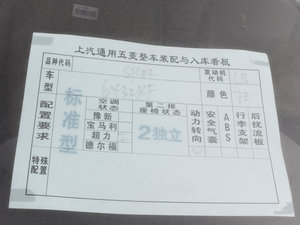 上汽通用五菱整车装配与入库看板
品种代码 发动机代码 1.8
车型 颜色
配置要求 标准型 空调状态 第二排座椅状态 动力转向 安全气囊 ABS 行李支架 后扰流板
豫新 2独立
宝马利
超力
德尔福
特殊配置